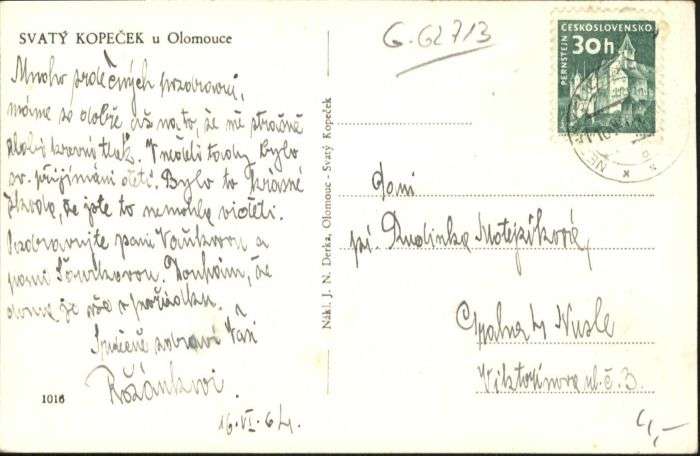 SVATÝ KOPEČEK u Olomouce
Mnoho srdečných pozdravů,
máme se dobře až na to, že mě strašně
zlobí krevní tlak. V neděli tady bylo
sv. přijímání dětí. Bylo to krásné
škoda, že jste to nemohla viděti.
Pozdravujte paní Vaňkovou a
paní Doufám, že
doma je vše v pořádku.
Srdečně zdraví Vaši
Růžánkovi
16.VI.64.
1016
Nákl. J. N. Derka, Olomouc - Svatý Kopeček
G-G2713
ČESKOSLOVENSKO
30h
PERNŠTEJN
pí.
Praha 4 Nusle
ul. č. 3.
4,-